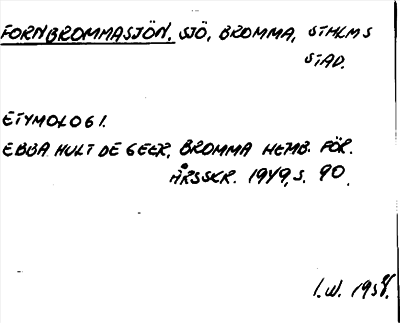 FORNBROMMASJÖN. SJÖ, BROMMA, STHLMS
STAD.
ETYMOLOGI.
EBBA HULT DE GEER, BROMMA HEMB. FÖR.
ÅRSSKR. 1949, S. 90.
I.W. 1958.